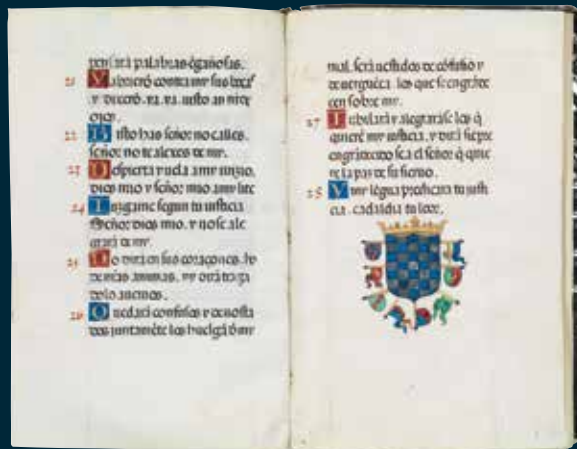 pensará palabras égañosas.
21 Y abrieró contra my sus bocas
y dixeró. va. va. visto an nros
ojos.
22 V isto has señor no calles.
señor no te alexes de my.
23 D espierta y vela a my juyzio.
dios mio y señor mio. a my lite
24 I uzgame segun tu justicia
señor dios mio. y no se ale
grará de my.
25 N o dirá en sus coraçones.
y no dirá
26 Q uedará confusos y
juntaméte los huelgá
mal. será vestidos de cófusió y
de vergueça. los que se engráde
cen sobre my.
27 I ubilará y alegraráse los q̃
quieré my justicia. y dirá siépre
engrádecido sea el señor q̃ quie
re la paz de su siervo.
28 Y my légua predicara tu justi
cia. cada día tu loor.